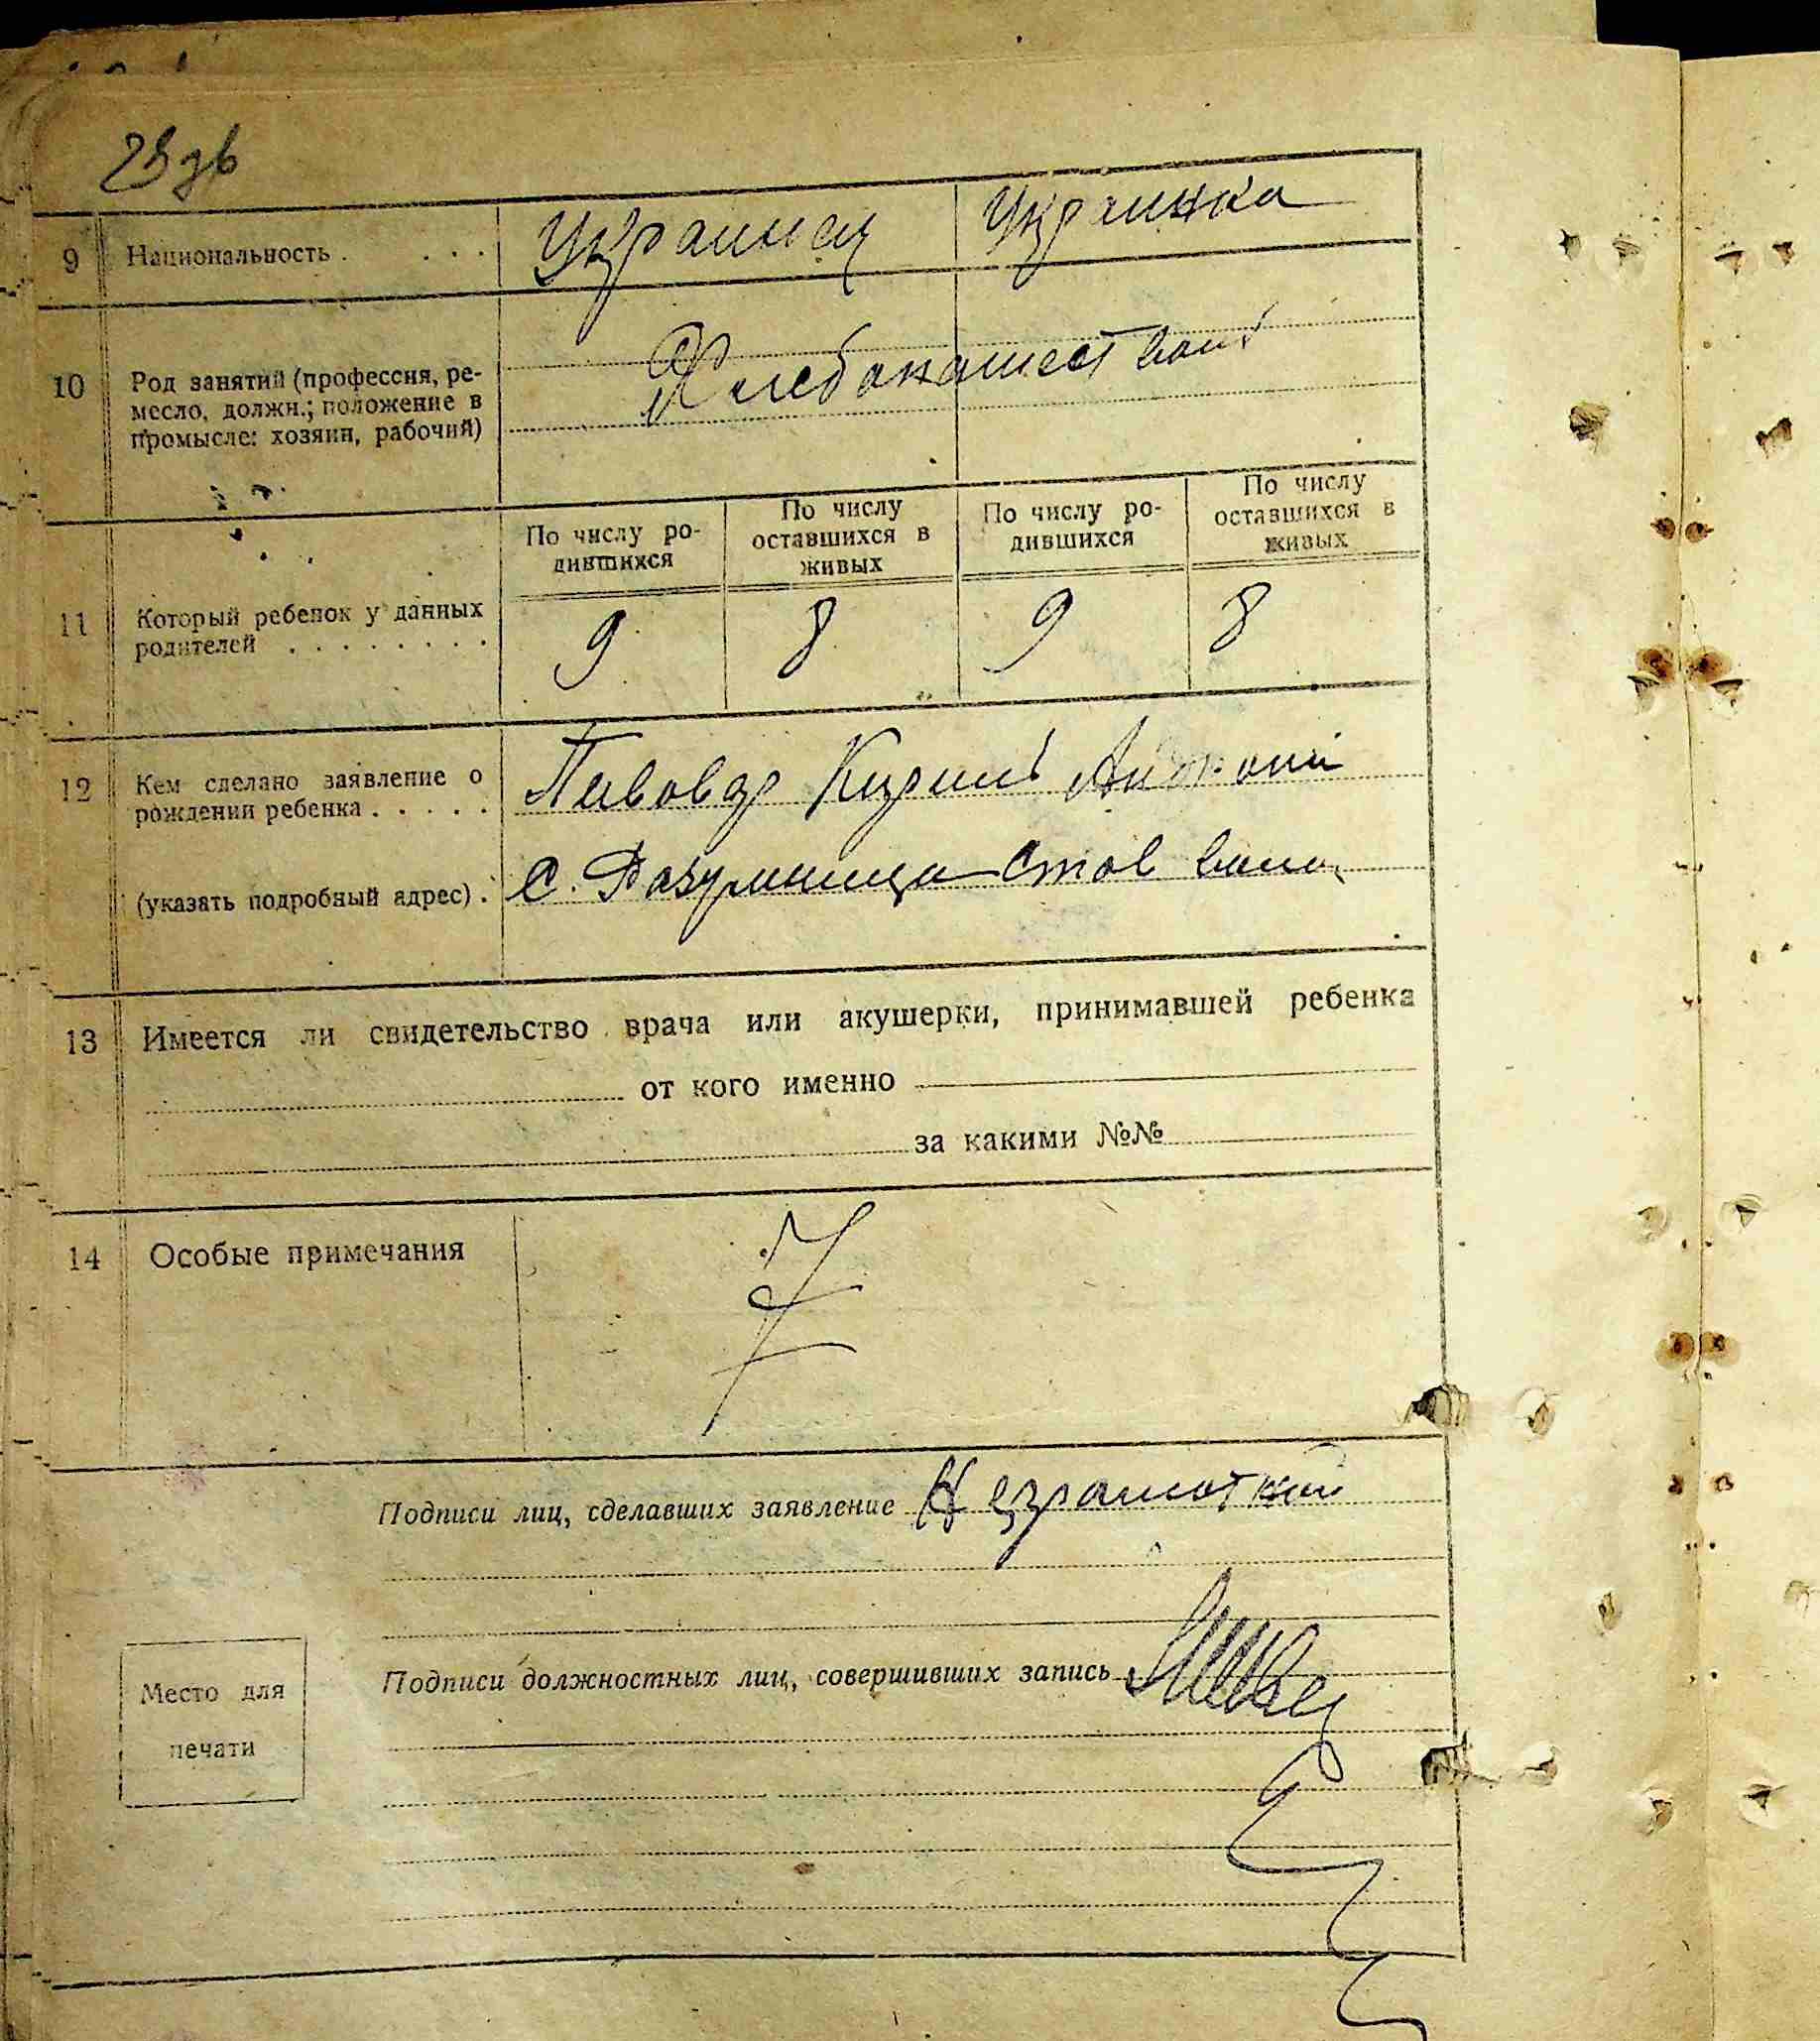 23 зв
9 Национальность . . . . Украинец Украинка
10 Род занятий (профессия, ре-
месло, должн.; положение в
промысле: хозяин, рабочий)
Хлебопашество
По числу ро-
дившихся
По числу
оставшихся в
живых
По числу ро-
дившихся
По числу
оставшихся в
живых
11 Который ребенок у данных
родителей . . . . . . . .
9 8 9 8
12 Кем сделано заявление о
рождении ребенка . . . . .
Пивовар Кирил
(указать подробный адрес) . С. Разумница Став воло
13 Имеется ли свидетельство врача или акушерки, принимавшей ребенка
от кого именно
за какими №№
14 Особые примечания
Подписи лиц, сделавших заявление Неграмотный
Подписи должностных лиц, совершивших запись
Место для
печати